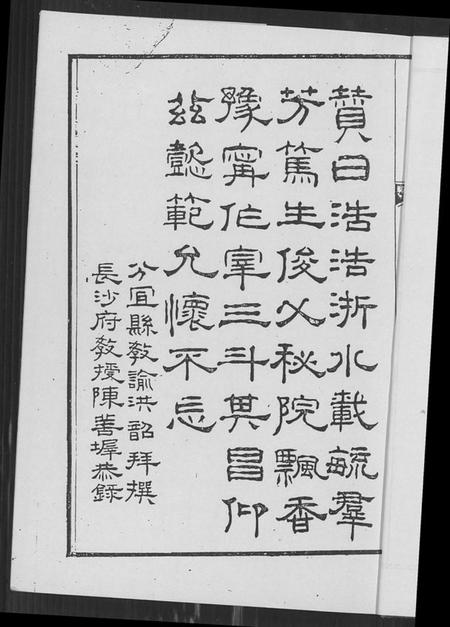 贊曰浩浩浙水載毓羣
芳篤生俊乂秘院飄香
豫甯作宰三斗其昌仰
茲懿範允懷不忘
分宜縣敎諭洪韶拜撰
長沙府敎授陳善墀恭錄